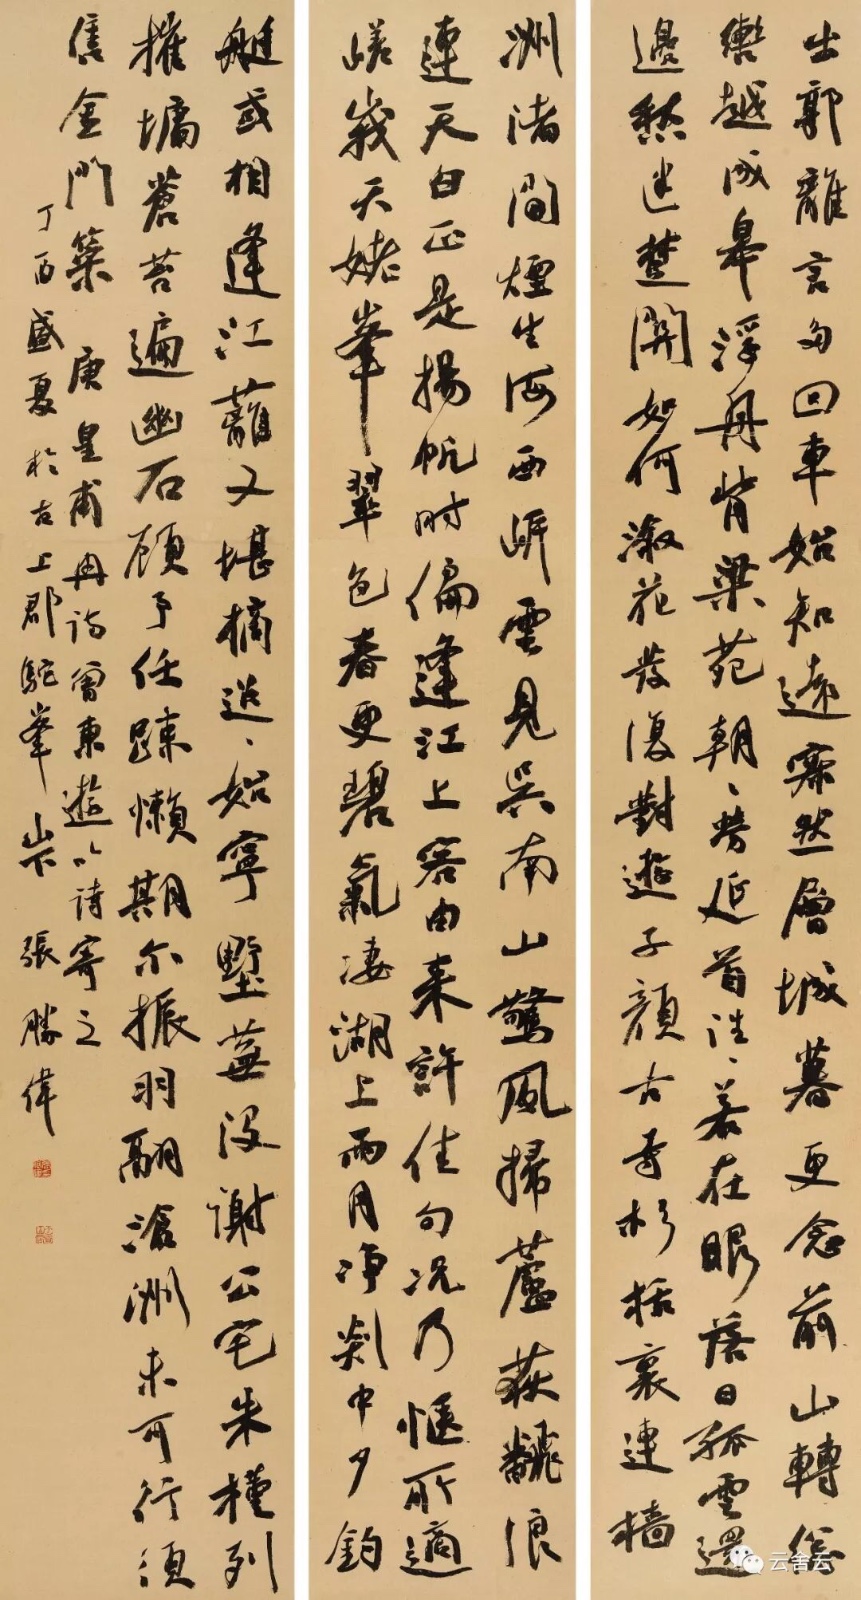 出郭離言多回車始知遠寂然層城暮更念前山轉總
轡越成皋浮舟背梁苑朝々勞延首往々若在眼落日孤雲還
邊愁迷楚關如何淑花發復對遊子顏古寺杉栝裏連檣
洲渚間煙生海西岸雲見吳南山驚風掃蘆荻翻浪
連天白正是揚帆時偏逢江上客由來許佳句況乃愜所適
嵯峩天姥峯翠色春更碧氣淒湖上雨月淨剡中夕釣
艇或相逢江蘺又堪摘迢々始寧墅蕪沒謝公宅朱槿列
摧墉蒼苔遍幽石顧予任疎懶期尓振羽翮滄洲未可行須
售金門策 唐皇甫冉詩曾東遊以詩寄之
丁酉盛夏於古上郡駝峯山下 張勝偉
云舍云